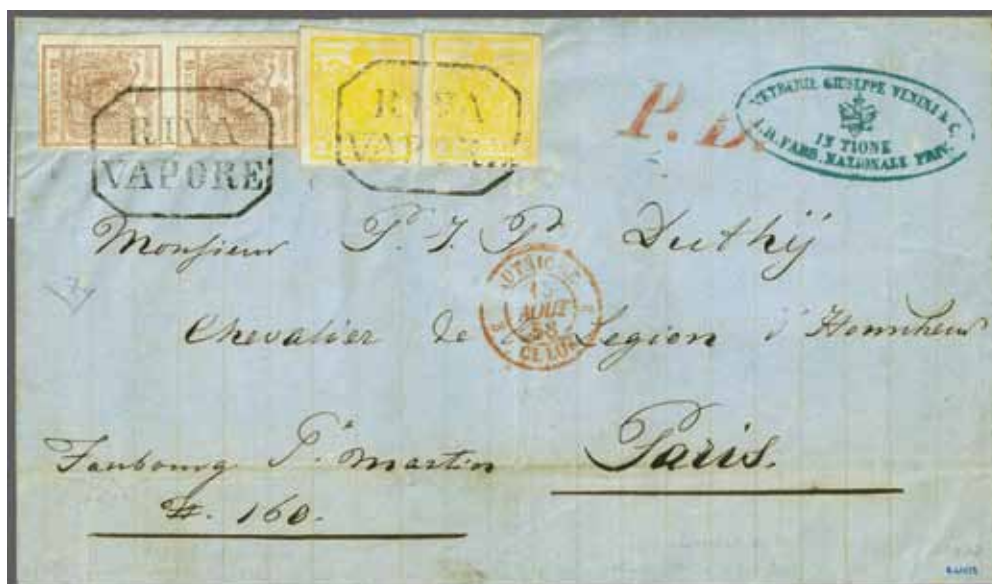 RIVA
VAPORE
RIVA
VAPORE
P.D.
VETRERIE GIUSEPPE VENINI & C.
IN TIONE
I.R. FABB. NAZIONALE PRIV.
Monsieur P. J. P. Duthÿ
AUTRICHE
13
AOUT
58
Chevalier de Legion d'Honnheur
Faubourg St. Martin
Paris.
#. 160.